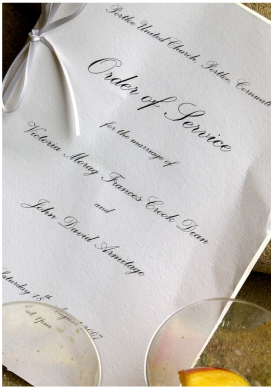 Portloe United Church, Portloe, Cornwall
Order of Service
for the marriage of
Victoria Morag Frances Crook Dean
and
John David Armitage
Saturday 18th August
at 1pm